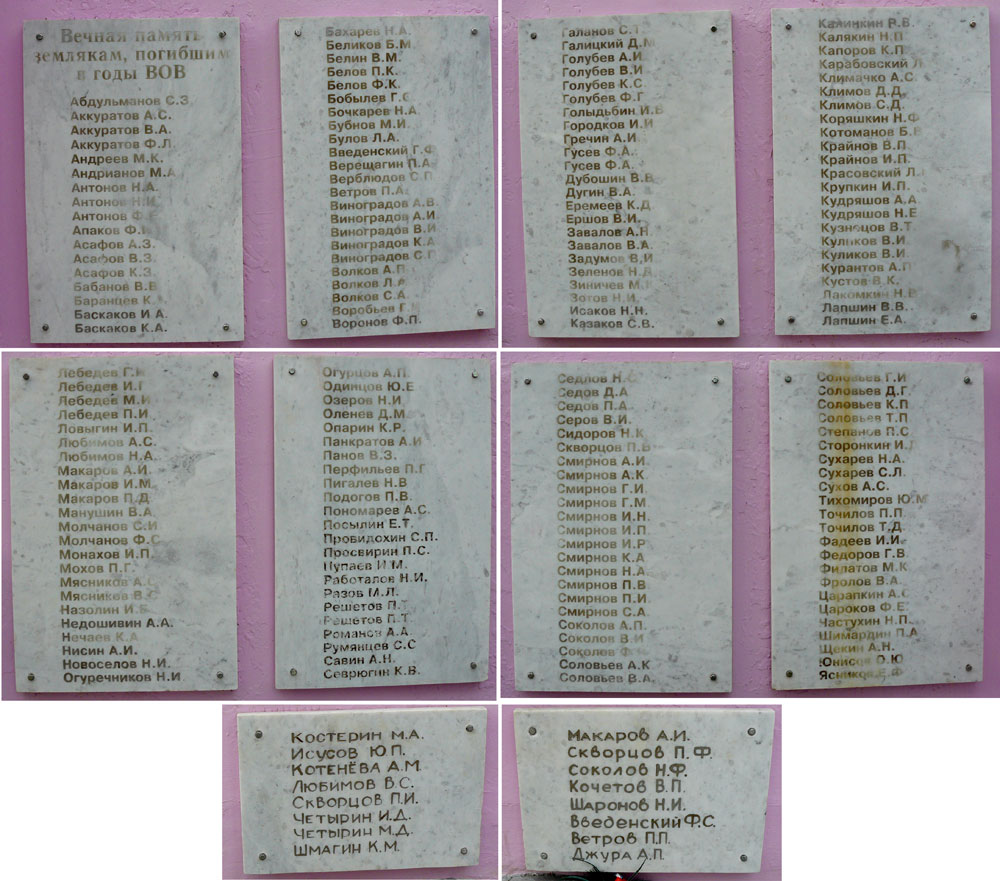 Вечная память
землякам, погибшим
в годы ВОВ
Абдульманов С.З.
Аккуратов А.С.
Аккуратов В.А.
Аккуратов Ф.Л.
Андреев М.К.
Андрианов М.А.
Антонов Н.А.
Антонов Н.И.
Антонов Ф.
Апаков Ф.
Асафов А.З.
Асафов В.З.
Асафов К.З.
Бабанов В.В.
Баранцев К.
Баскаков И.А.
Баскаков К.А.
Бахарев Н.А.
Беликов Б.М.
Белин В.М.
Белов П.К.
Белов Ф.К.
Бобылев Г.С.
Бочкарев Н.А.
Бубнов М.И.
Булов Л.А.
Введенский Г.Ф.
Верещагин П.А.
Верблюдов С.П.
Ветров П.А.
Виноградов А.В.
Виноградов А.И.
Виноградов В.И.
Виноградов К.А.
Виноградов С.Г.
Волков А.П.
Волков Л.А.
Волков С.А.
Воробьев Г.М.
Воронов Ф.П.
Галанов С.Т.
Галицкий Д.М.
Голубев А.И.
Голубев В.И.
Голубев К.С.
Голубев Ф.Г.
Голыдьбин И.В.
Городков И.И.
Гречин А.И.
Гусев Ф.А.
Гусев Ф.А.
Дубошин В.В.
Дугин В.А.
Еремеев К.Д.
Ершов В.И.
Завалов А.Н.
Завалов В.А.
Задумов В.И.
Зеленов Н.Д.
Зиничев М.
Зотов Н.И.
Исаков Н.Н.
Казаков С.В.
Калинкин Р.В.
Калякин Н.П.
Капоров К.П.
Карабовский Л.
Климачко А.С.
Климов Д.Д.
Климов С.Д.
Коряшкин Н.Ф.
Котоманов Б.
Крайнов В.П.
Крайнов И.П.
Красовский Л.
Крупкин И.П.
Кудряшов А.А.
Кудряшов Н.Е.
Кузнецов В.Т.
Куликов В.И.
Куликов В.И.
Курантов А.П.
Кустов В.К.
Лакомкин Н.В.
Лапшин В.В.
Лапшин Е.А.
Лебедев Г.И.
Лебедев И.Г.
Лебедев М.И.
Лебедев П.И.
Ловыгин И.П.
Любимов А.С.
Любимов Н.А.
Макаров А.И.
Макаров И.М.
Макаров П.Д.
Манушин В.А.
Молчанов С.И.
Молчанов Ф.С.
Монахов И.П.
Мохов П.Г.
Мясников А.С.
Мясников В.С.
Назолин И.Б.
Недошивин А.А.
Нечаев К.А.
Нисин А.И.
Новоселов Н.И.
Огуречников Н.И.
Огурцов А.П.
Одинцов Ю.Е.
Озеров Н.И.
Оленев Д.М.
Опарин К.Р.
Панкратов А.И.
Панов В.З.
Перфильев П.Г.
Пигалев Н.В.
Подогов П.В.
Пономарев А.С.
Посылин Е.Т.
Провидохин С.П.
Просвирин П.С.
Пупаев И.М.
Работалов Н.И.
Разов М.Л.
Решетов П.Т.
Решетов П.Т.
Романов А.А.
Румянцев С.С.
Савин А.Н.
Севрюгин К.В.
Седлов Н.С.
Седов Д.А.
Седов П.А.
Серов В.И.
Сидоров Н.К.
Скворцов П.В.
Смирнов А.И.
Смирнов А.К.
Смирнов Г.И.
Смирнов Г.М.
Смирнов И.Н.
Смирнов И.П.
Смирнов И.Р.
Смирнов К.А.
Смирнов Н.А.
Смирнов П.В.
Смирнов П.И.
Смирнов С.А.
Соколов А.П.
Соколов В.И.
Соколов Ф.
Соловьев А.К.
Соловьев В.А.
Соловьев Г.И.
Соловьев Д.Г.
Соловьев К.П.
Соловьев Т.П.
Степанов П.С.
Сторонкин И.
Сухарев Н.А.
Сухарев С.Л.
Сухов А.С.
Тихомиров Ю.М.
Точилов П.П.
Точилов Т.Д.
Фадеев И.И.
Федоров Г.В.
Филатов М.К.
Фролов В.А.
Царапкин А.С.
Цароков Ф.Е.
Частухин Н.П.
Шимардин П.А.
Щекин А.Н.
Юнисов О.Ю.
Ясников Е.Ф.
Костерин М.А.
Исусов Ю.П.
Котенёва А.М.
Любимов В.С.
Скворцов П.И.
Четырин И.Д.
Четырин М.Д.
Шмагин К.М.
Макаров А.И.
Скворцов П.Ф.
Соколов Н.Ф.
Кочетов В.П.
Шаронов Н.И.
Введенский Ф.С.
Ветров П.П.
Джура А.П.